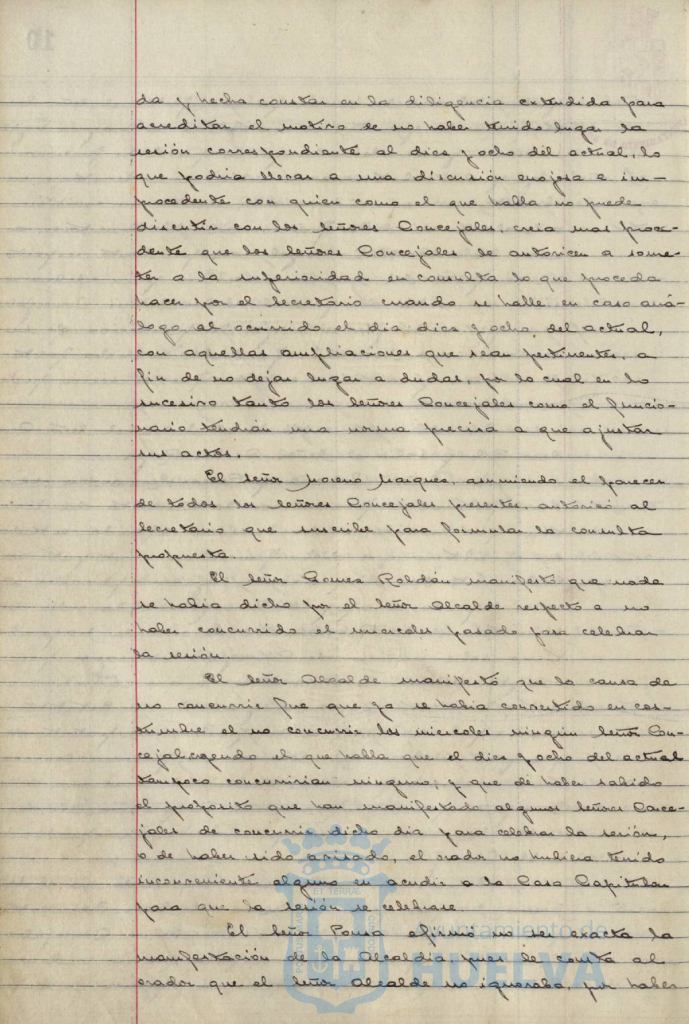 da y hecha constar en la diligencia extendida para
acreditar el motivo de no haber tenido lugar la
sesión correspondiente al dies y ocho del actual, lo
que podria llevar a una discusión enojosa e im-
procedente con quien como el que habla no puede
discutir con los señores Concejales, creia mas proce-
dente que los señores Concejales le autoricen a some-
ter a la superioridad en consulta lo que proceda
hacer por el Secretario cuando se halle en caso aná-
logo al ocurrido el dia dies y ocho del actual,
con aquellas ampliaciones que sean pertinentes, a
fin de no dejar lugar a dudas, por lo cual en lo
sucesivo tanto los señores Concejales como el funcio-
nario tendrán una norma precisa a que ajustar
sus actos.
El señor Moreno Marques, asumiendo el parecer
de todos los señores Concejales presentes, autorizó al
Secretario que suscribe para formular la consulta
propuesta.
El señor Gomez Roldán manifestó que nada
se habia dicho por el señor Alcalde respecto a no
haber concurrido el miercoles pasado para celebrar
la sesión.
El señor Alcalde manifestó que la causa de
no concurrir fue que ya se habia convertido en cos-
tumbre el no concurrir los miercoles ningun señor Con-
cejal creyendo el que habla que el dies y ocho del actual
tampoco concurririan ninguno; y que de haber sabido
el propósito que han manifestado algunos señores Conce-
jales de concurrir dicho dia para celebrar la sesión,
o de haber sido avisado, el orador no hubiera tenido
inconveniente alguno en acudir a la Casa Capitular
para que la sesión se celebrase.
El señor Ponsa afirmó no ser exacta la
manifestación de la Alcaldia pues le consta al
orador que el señor Alcalde no ignoraba, por haber
Ayuntamiento de
HUELVA